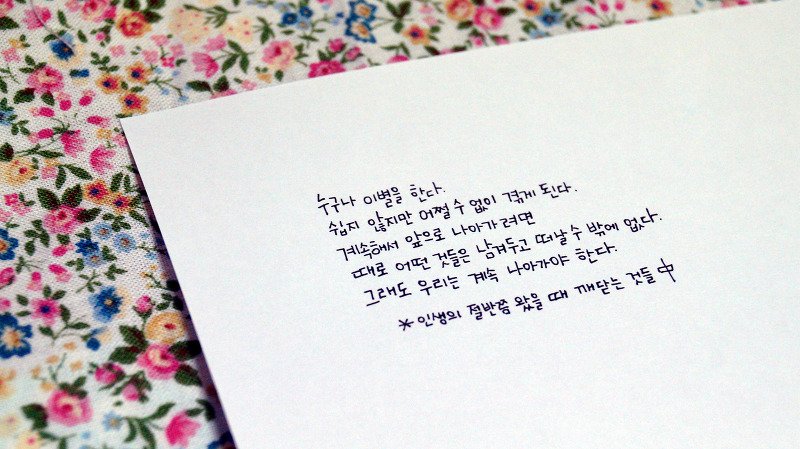 누구나 이별을 한다.
쉽지 않지만 어쩔 수 없이 겪게 된다.
계속해서 앞으로 나아가려면
때로 어떤 것들은 남겨두고 떠날 수 밖에 없다.
그래도 우리는 계속 나아가야 한다.
* 인생의 절반쯤 왔을 때 깨닫는 것들 中